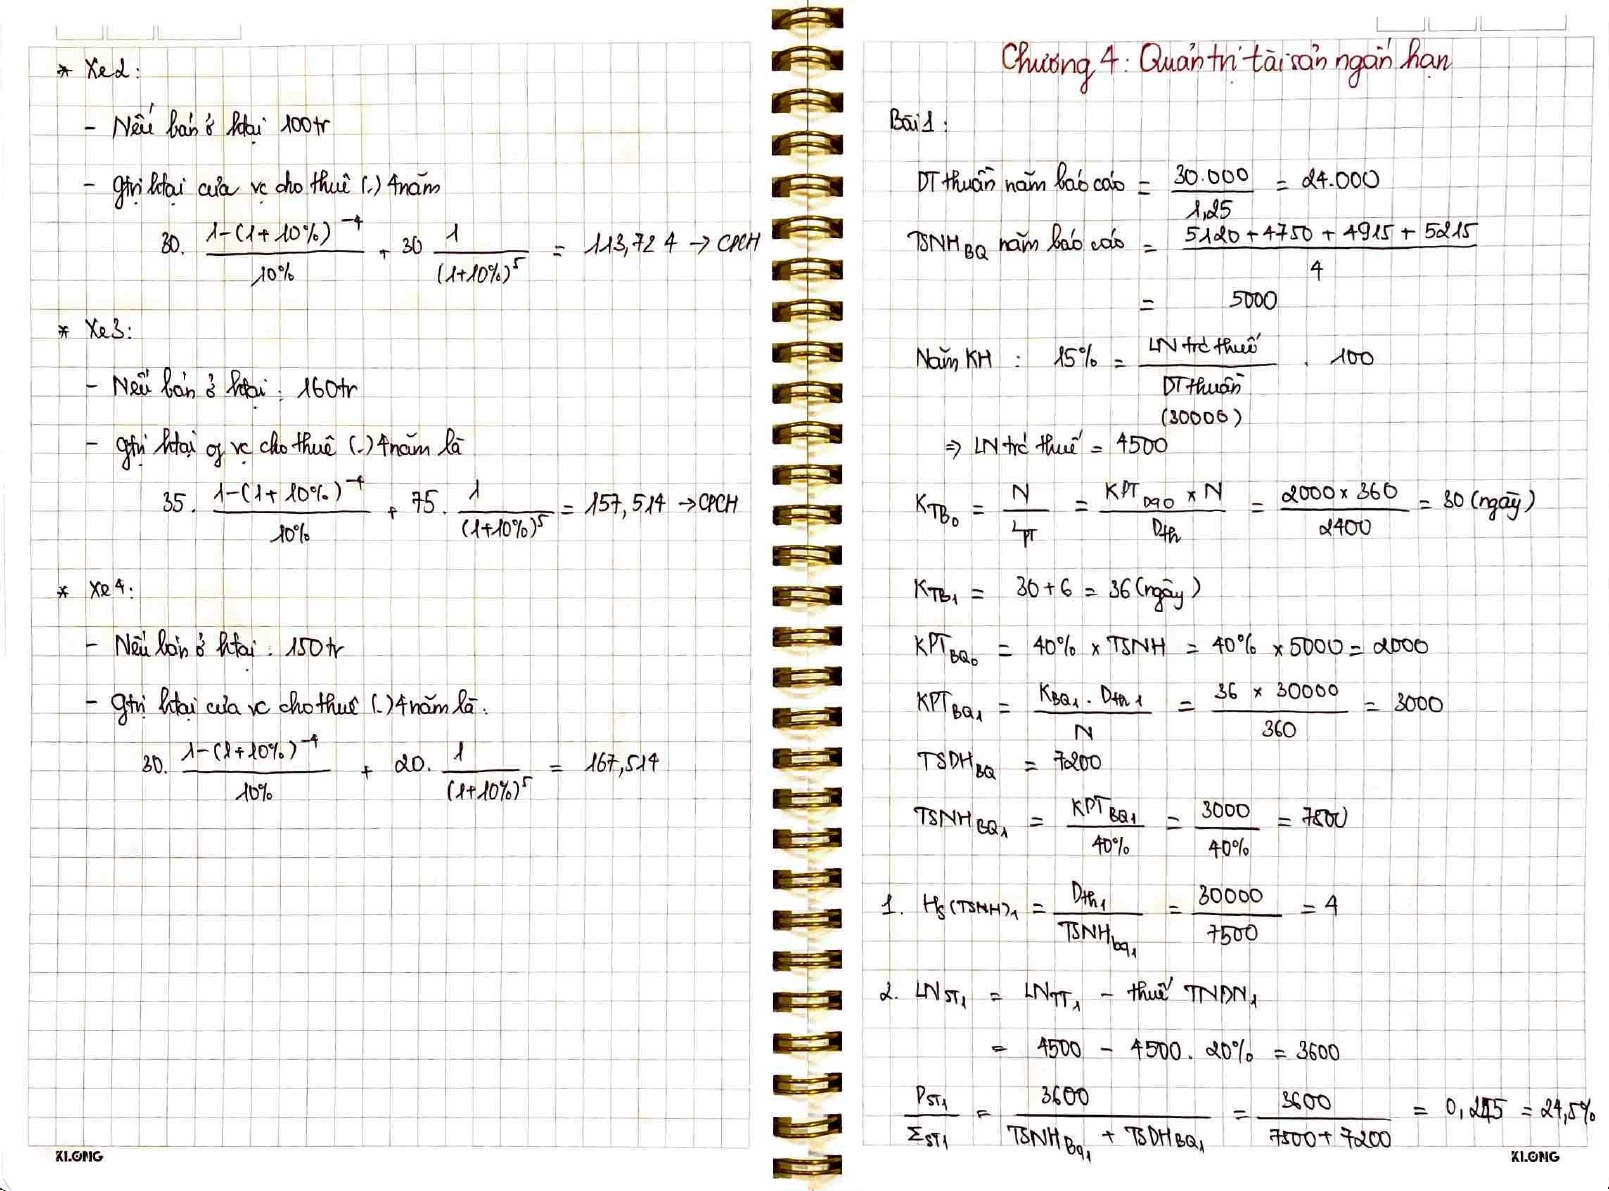 * Xe2:
- Nếu bán ở htại 100tr
- gtrị htại của vc cho thuê (.) 4 năm
30. (1-(1+10%)^-4)/10% + 30 1/(1+10%)^5 = 113,724 → CPCH
* Xe3:
- Nếu bán ở htại: 160tr
- gtrị htại of vc cho thuê (.) 4 năm là
35. (1-(1+10%)^-4)/10% + 75. 1/(1+10%)^5 = 157,514 → CPCH
* Xe4:
- Nếu bán ở htại: 150tr
- gtrị htại của vc cho thuê (.) 4 năm là:
30. (1-(1+10%)^-4)/10% + 20. 1/(1+10%)^5 = 167,514
XLONG
Chương 4: Quản trị tài sản ngắn hạn
Bài 1:
DT thuần năm báo cáo = 30.000/1,25 = 24.000
TSNH_BQ năm báo cáo = (5120+4750+4915+5215)/4
= 5000
Năm KH : 15% = LN trc thuế/DT thuần (30000) . 100
⇒ LN trc thuế = 4500
K_TB0 = N/L_PT = (KPT_BQ0 x N)/D_th = (2000 x 360)/2400 = 30 (ngày)
K_TB1 = 30+6 = 36 (ngày)
KPT_BQ0 = 40% x TSNH = 40% x 5000 = 2000
KPT_BQ1 = (K_BQ1 . D_th1)/N = (36 x 30000)/360 = 3000
TSDH_BQ = 7200
TSNH_BQ1 = KPT_BQ1/40% = 3000/40% = 7500
1. Hs(TSNH)1 = D_th1/TSNH_bq1 = 30000/7500 = 4
2. LN_ST1 = LN_TT1 - thuế TNDN1
= 4500 - 4500. 20% = 3600
P_ST1/Σ_ST1 = 3600/(TSNH_BQ1 + TSDH_BQ1) = 3600/(7500+7200) = 0,245 = 24,5%
XLONG